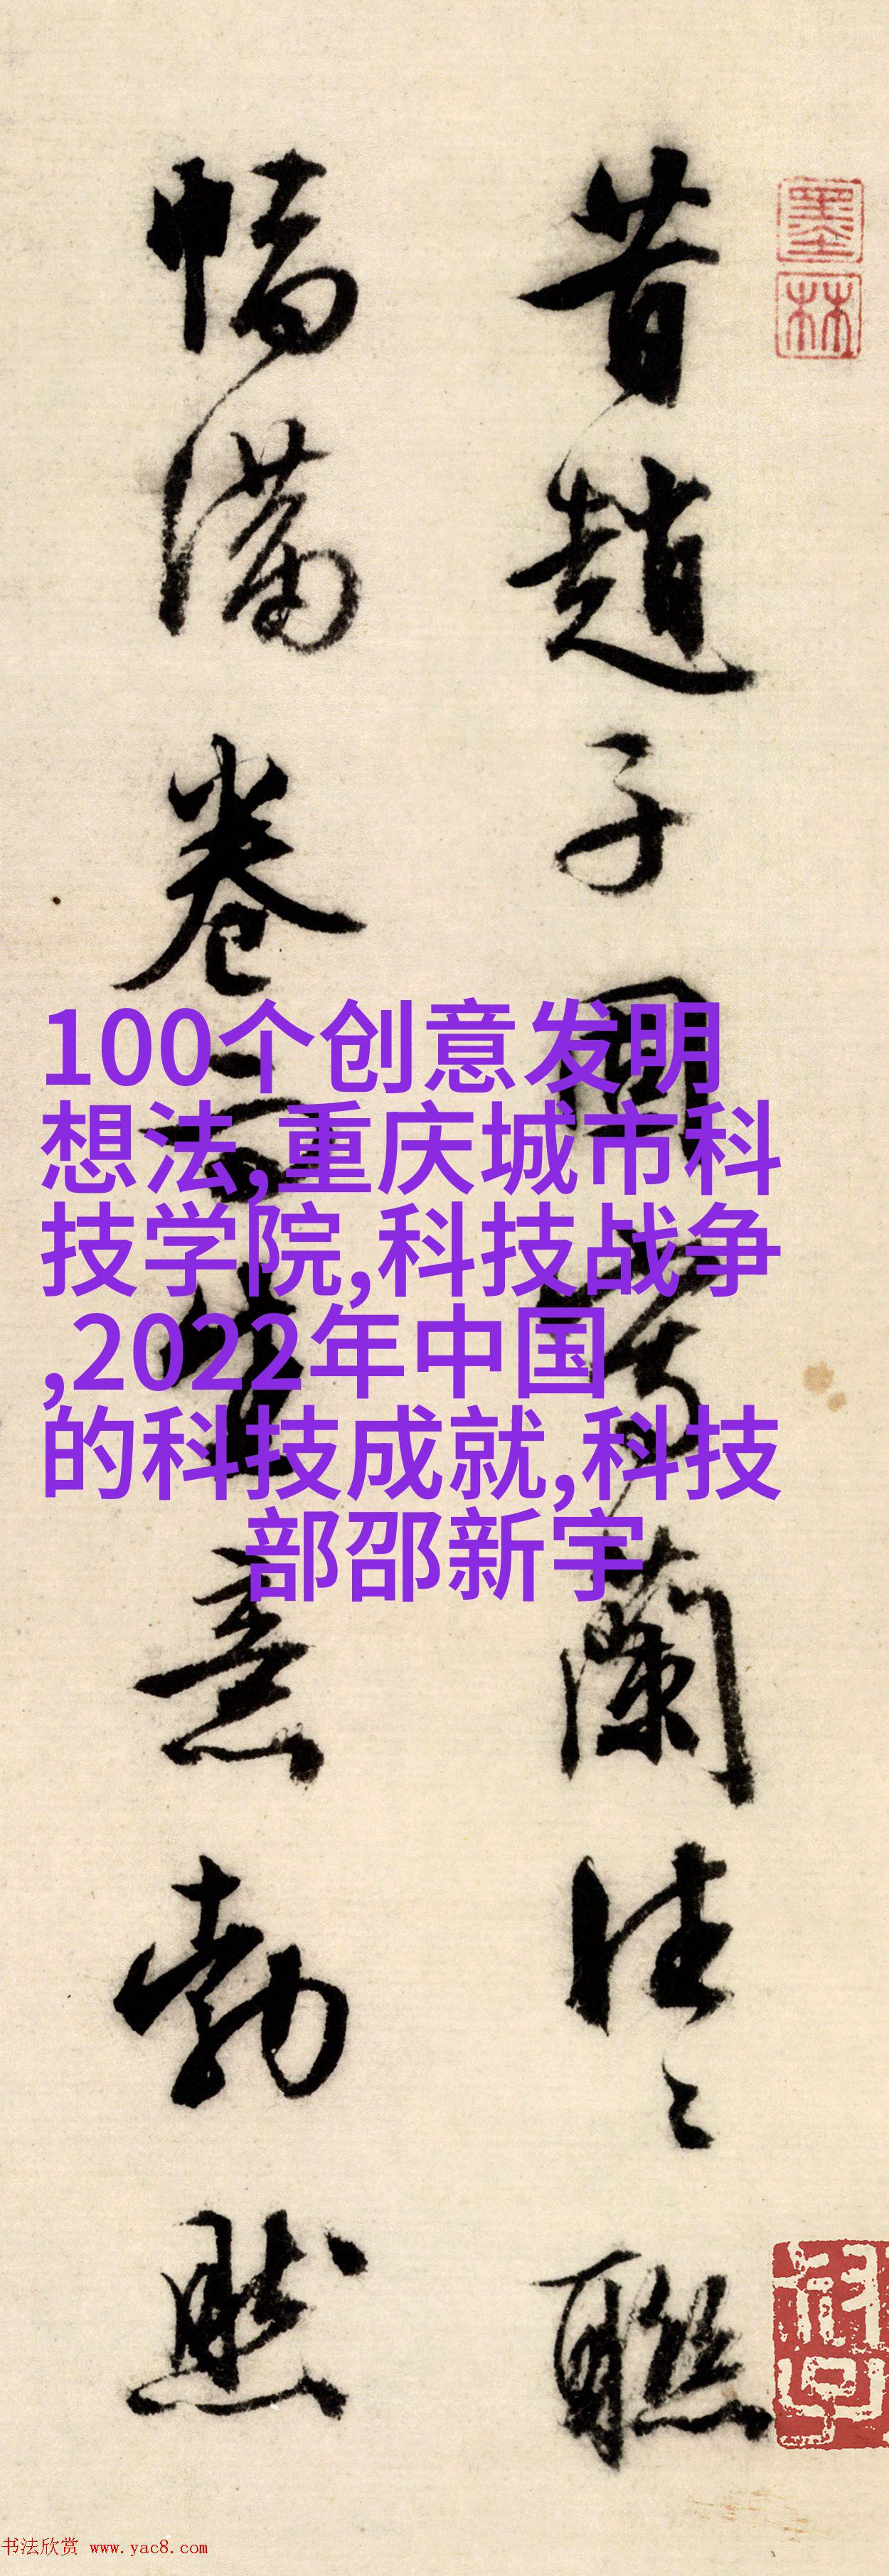 昔趙子固寫蘭往々聯
幅滿卷
意勃然
墨林
100个创意发明
想法,重庆城市科
技学院,科技战争
,2022年中国
的科技成就,科技
部邵新宇
书法欣赏 www.yac8.com